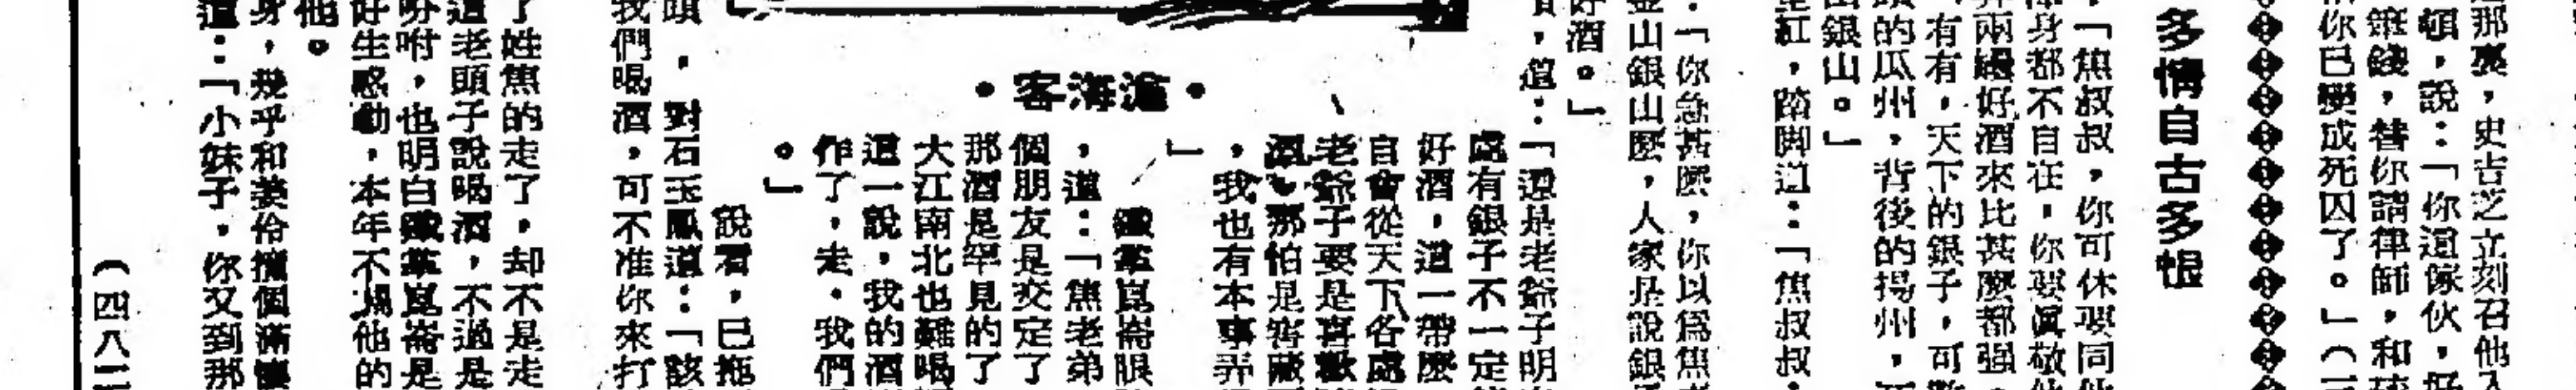 那裏，史吉芝立刻召他
頓，說：「你這傢伙，
錢，替你請律師，和
你已變成死囚了。」（
多情自古多恨
，「焦叔叔，你可休要同
身都不自在，你要眞敬
兩罎好酒來比甚麼都强，
有有，天下的銀子，可
的瓜州，背後的揚州，
銀山。」
紅，踏脚道：「焦叔叔，
：「你急甚麼，你以爲焦
金山銀山麼，人家是說銀
好酒。」
，道：「還是老爺子明
處有銀子不一定
好酒，這一帶麼
自會從天下各處
老爺子要是喜歡
酒，那怕是窖藏
，我也有本事弄
」
鐵掌崑崙眼
，道：「焦老弟
個朋友是交定了
那酒是罕見的了
大江南北也難喝
這一說，我的酒
作了，走，我們
。」
滬海客
說着，已拖
頭，對石玉鳳道：「該
我們喝酒，可不准你來打
了姓焦的走了，却不是走
這老頭子說喝酒，不過是
吩咐，也明白鐵掌崑崙是
好生感動，本年不屬他的
他。
身，幾乎和姜伶撞個滿懷
道：「小妹子，你又到那
（四八